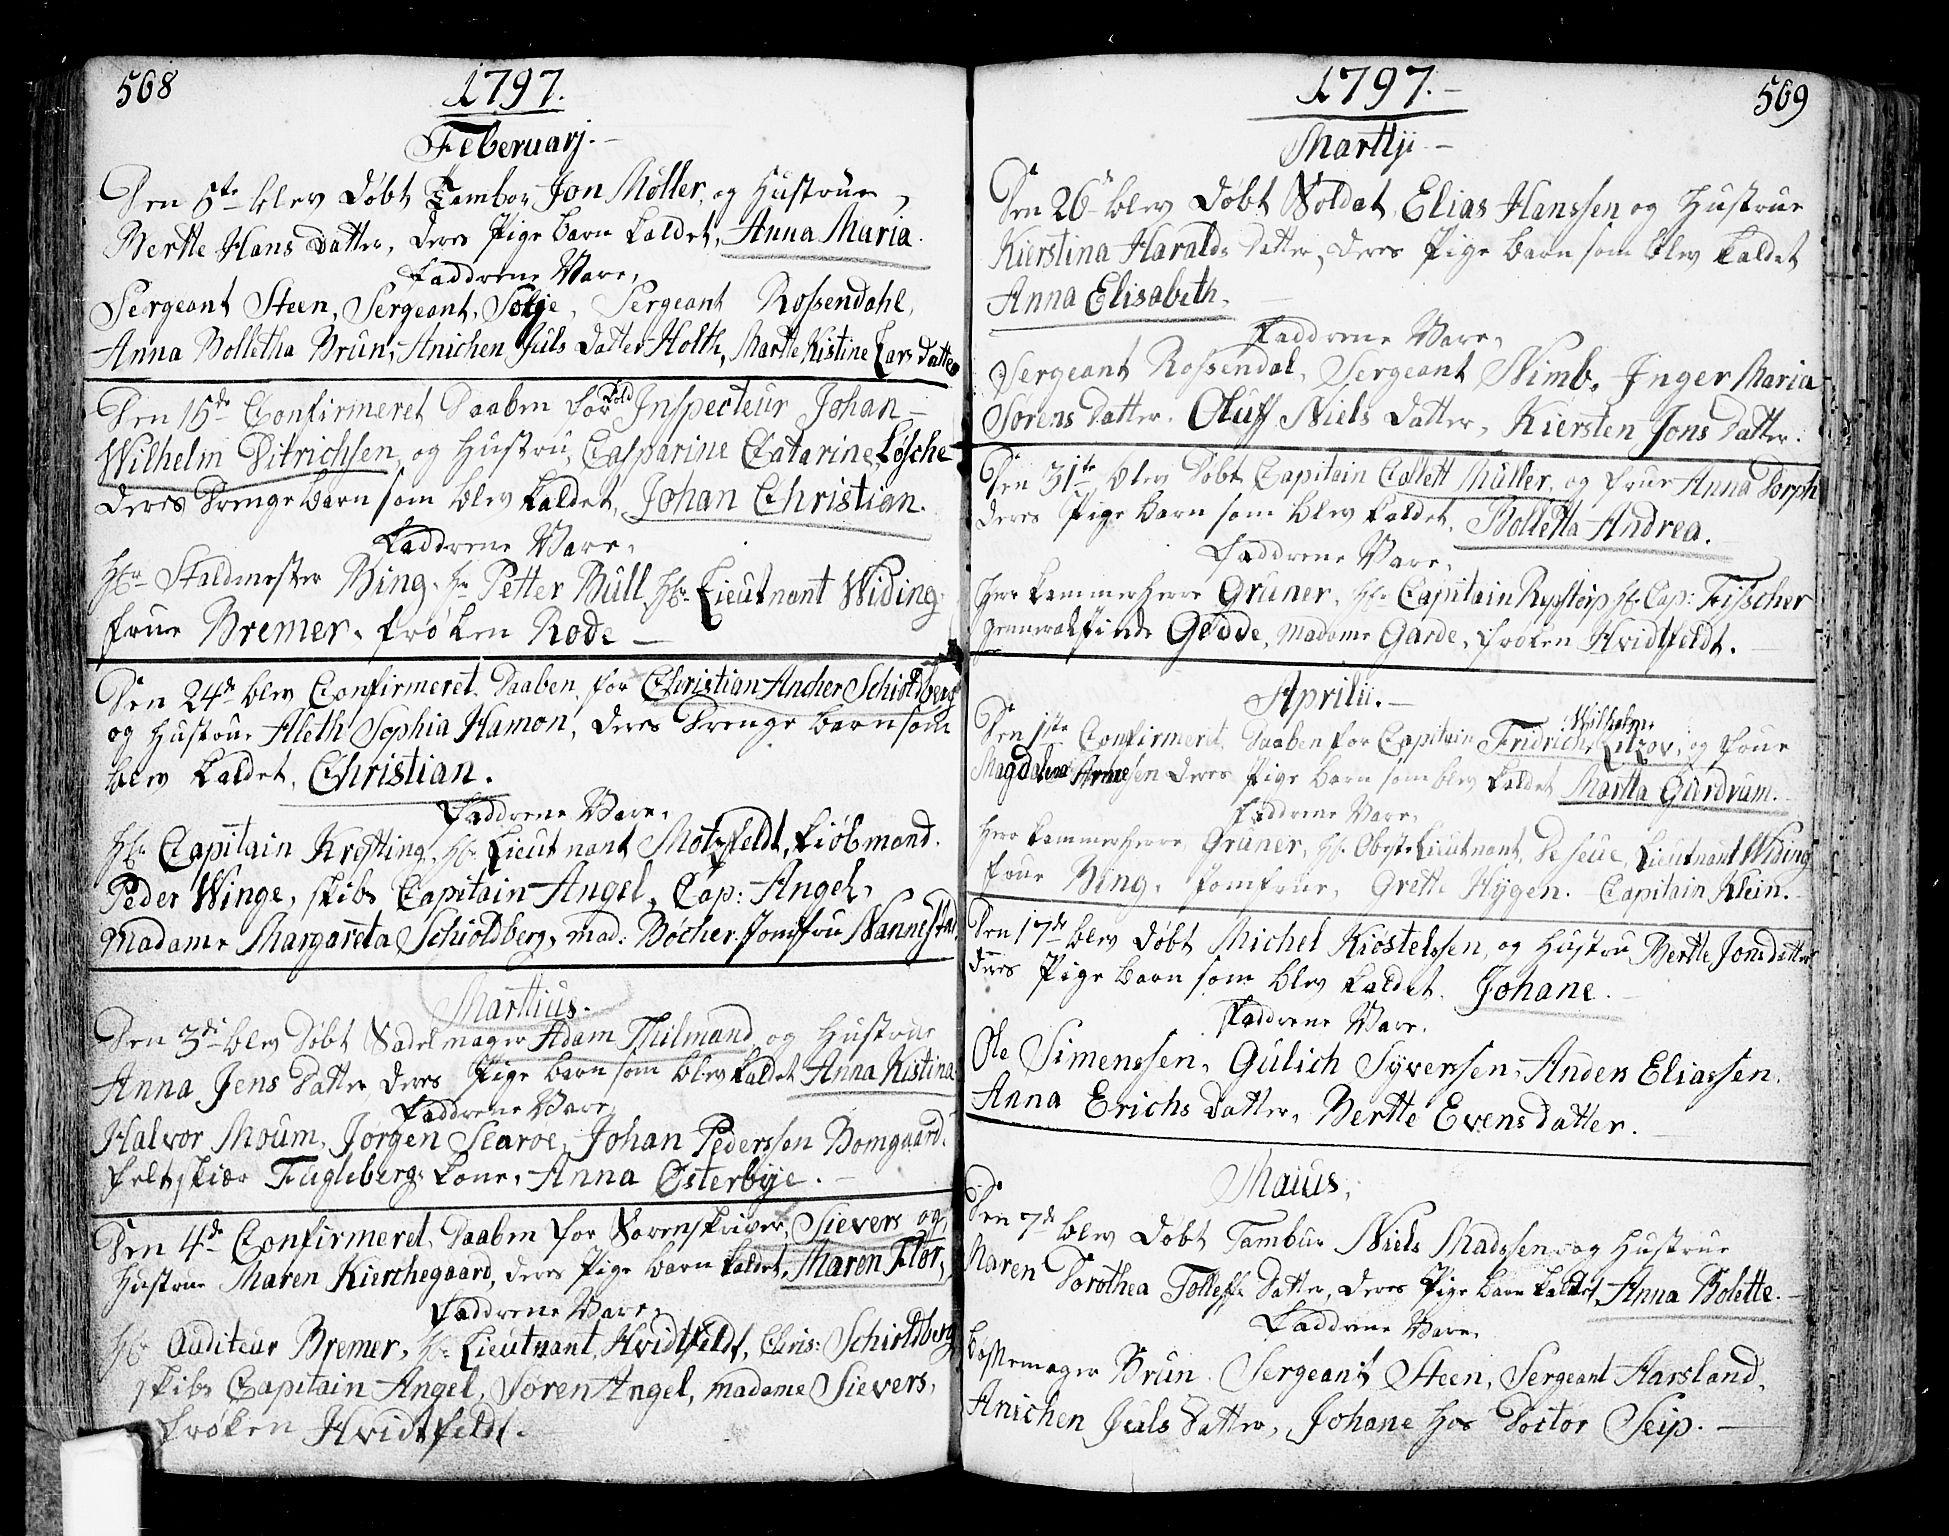 568
1797.
Feberuarj.
Den 5te blev Døbt Tambor Jon Møller, og Hustrue,
Berthe Hans Datter, Deres Pige barn kaldet, Anna Maria.
Faddrene Vare,
Sergeant Steen, Sergeant, Sølje, Sergeant Rossendahl,
Anna Bolletha Brun, Anichen Juls Datter Holth, Marthe Kistine Lars Datter
Den 15de Confirmeret Daaben for Told Inspecteur Johan
Wilhelm Ditrichsen, og Hustru, Casparine Catarine Løsche
Deres Drenge barn som blev kaldet, Johan Christian.
Faddrene Vare,
Hr Staldmester Bing, Hr Petter Bull, Hr Lieutnant Widing,
frue Bremer, frøken Rode
Den 24de blev Confirmeret Daaben for Christian Ancher Schioldberg
og Hustrue Aleth Sophia Hamon, Deres Drenge barn som
blev kaldet, Christian.
Faddrene Vare,
Hr Capitain Krefting, Hr Lieutnant Motzfeldt, kiøbmand.
Peder Winge, skibs Capitain Angel, Cap: Angel,
Madame Margareta Schioldberg, mad: Bøcher. Jomfru Nannestad
Marthius.
Den 3de blev Døbt Sadelmager Adam Thilmand, og Hustrue
Anna Jens Datter, Deres Pige barn som blev kaldet Anna Kistina
Faddrene Vare,
Halvor Moum, Jørgen Scaroe, Johan Pederssen Bomgaard.
feltskiær Fugleberg kone, Anna Østerbye.
Den 4de Confirmeret, Daaben for Sorenskriver, Sievers og
Hustrue Maren Kierchegaard, deres Pige barn kaldet, Maren Flor,
Faddrene Vare,
Hr Auditeur Bremer, Hr Lieutnant, Hvidtfeldt, Chris: Schioldberg
skibs Capitain Angel, Søren Angel, madame Sievers,
frøken Hvidtfeldt.
569
1797.
Marttji
Den 26de blev Døbt Soldat, Elias Hanssen og Hustrue
Kierstina Haralds Datter, Deres Pige barn som blev kaldet
Anna Elisabeth.
Faddrene Vare,
Sergeant Rossendal, Sergeant Nimb, Inger Maria
Sørens Datter. Oluff Niels Datter, Kiersten Jons Datter.
Den 31te blev Døbt Capitain Collett Müller, og frue Anna Dorph
Deres Pige barn som blev kaldet, Bolletta Andrea.
Faddrene Vare,
Herr kammerherre Gruner, Hr Capitain Rystorp Hr Cap: Fischer
Gennerals inde Gedde, Madame Garde, frøken Hvidtfeldt.
Aprilii.
Den 1ste Confirmeret, Daaben for Capitain Fridrich Wilhelm Litzov, og frue
Magdalena Arnesen Deres Pige barn som blev kaldet Martha Gurdrum.
Faddrene Vare,
Herr kammerherre, Gruner, Hr Obrste Lieutnant, De Seue, Lieutnant Widing
frue Bing, Jomfrue, Grette Hygen. Capitain Klein.
Den 17de blev Døbt Michel Kiostelssen, og Hustru Berthe Jonsdatter
deres Pige barn som blev kaldet, Johane.
Faddrene Vare,
Ole Simenssen, Gulich Syverssen, Anders Eliassen,
Anna Erichs Datter, Berthe Evensdatter.
Maius,
Den 7de blev Døbt Tambur Niels Madssen og Hustrue
Maren Dorothea Tolleffs Datter, Deres Pige barn kaldet, Anna Bolette.
Faddrene Vare,
Bøssemager Brun, Sergeant Steen, Sergeant Aarsland,
Anichen Juls Datter, Johane hos Doctor Seip.